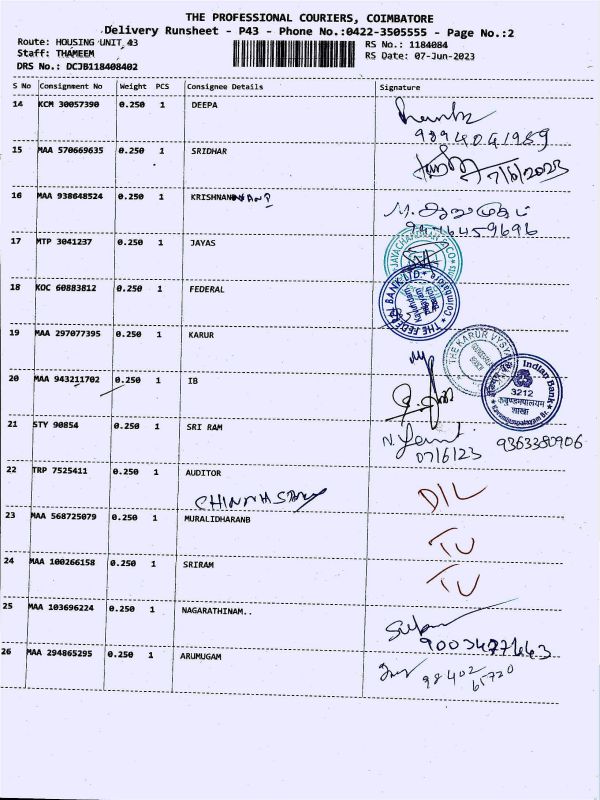 THE PROFESSIONAL COURIERS, COIMBATORE
Delivery Runsheet - P43 - Phone No.:0422-3505555 - Page No.:2
Route: HOUSING UNIT 43
RS No.: 1184084
Staff: THAMEEM
RS Date: 07-Jun-2023
DRS No.: DCJB118408402
S No Consignment No Weight PCS Consignee Details Signature
14 KCM 30057390 0.250 1 DEEPA
9894041989
15 MAA 570669635 0.250 1 SRIDHAR
7/6/2023
16 MAA 938648524 0.250 1 KRISHNAN
17 MTP 3041237 0.250 1 JAYAS
18 KOC 60883812 0.250 1 FEDERAL
THE FEDERAL BANK LTD.
Coimbatore
19 MAA 297077395 0.250 1 KARUR
THE KARUR VYSYA
20 MAA 943211702 0.250 1 IB
Indian Bank
3212
शाखा
21 STY 90854 0.250 1 SRI RAM
07/6/23 9363380906
22 TRP 7525411 0.250 1 AUDITOR
D/L
23 MAA 568725079 0.250 1 MURALIDHARANB
TU
24 MAA 100266158 0.250 1 SRIRAM
TU
25 MAA 103696224 0.250 1 NAGARATHINAM..
26 MAA 294865295 0.250 1 ARUMUGAM
98402
65720